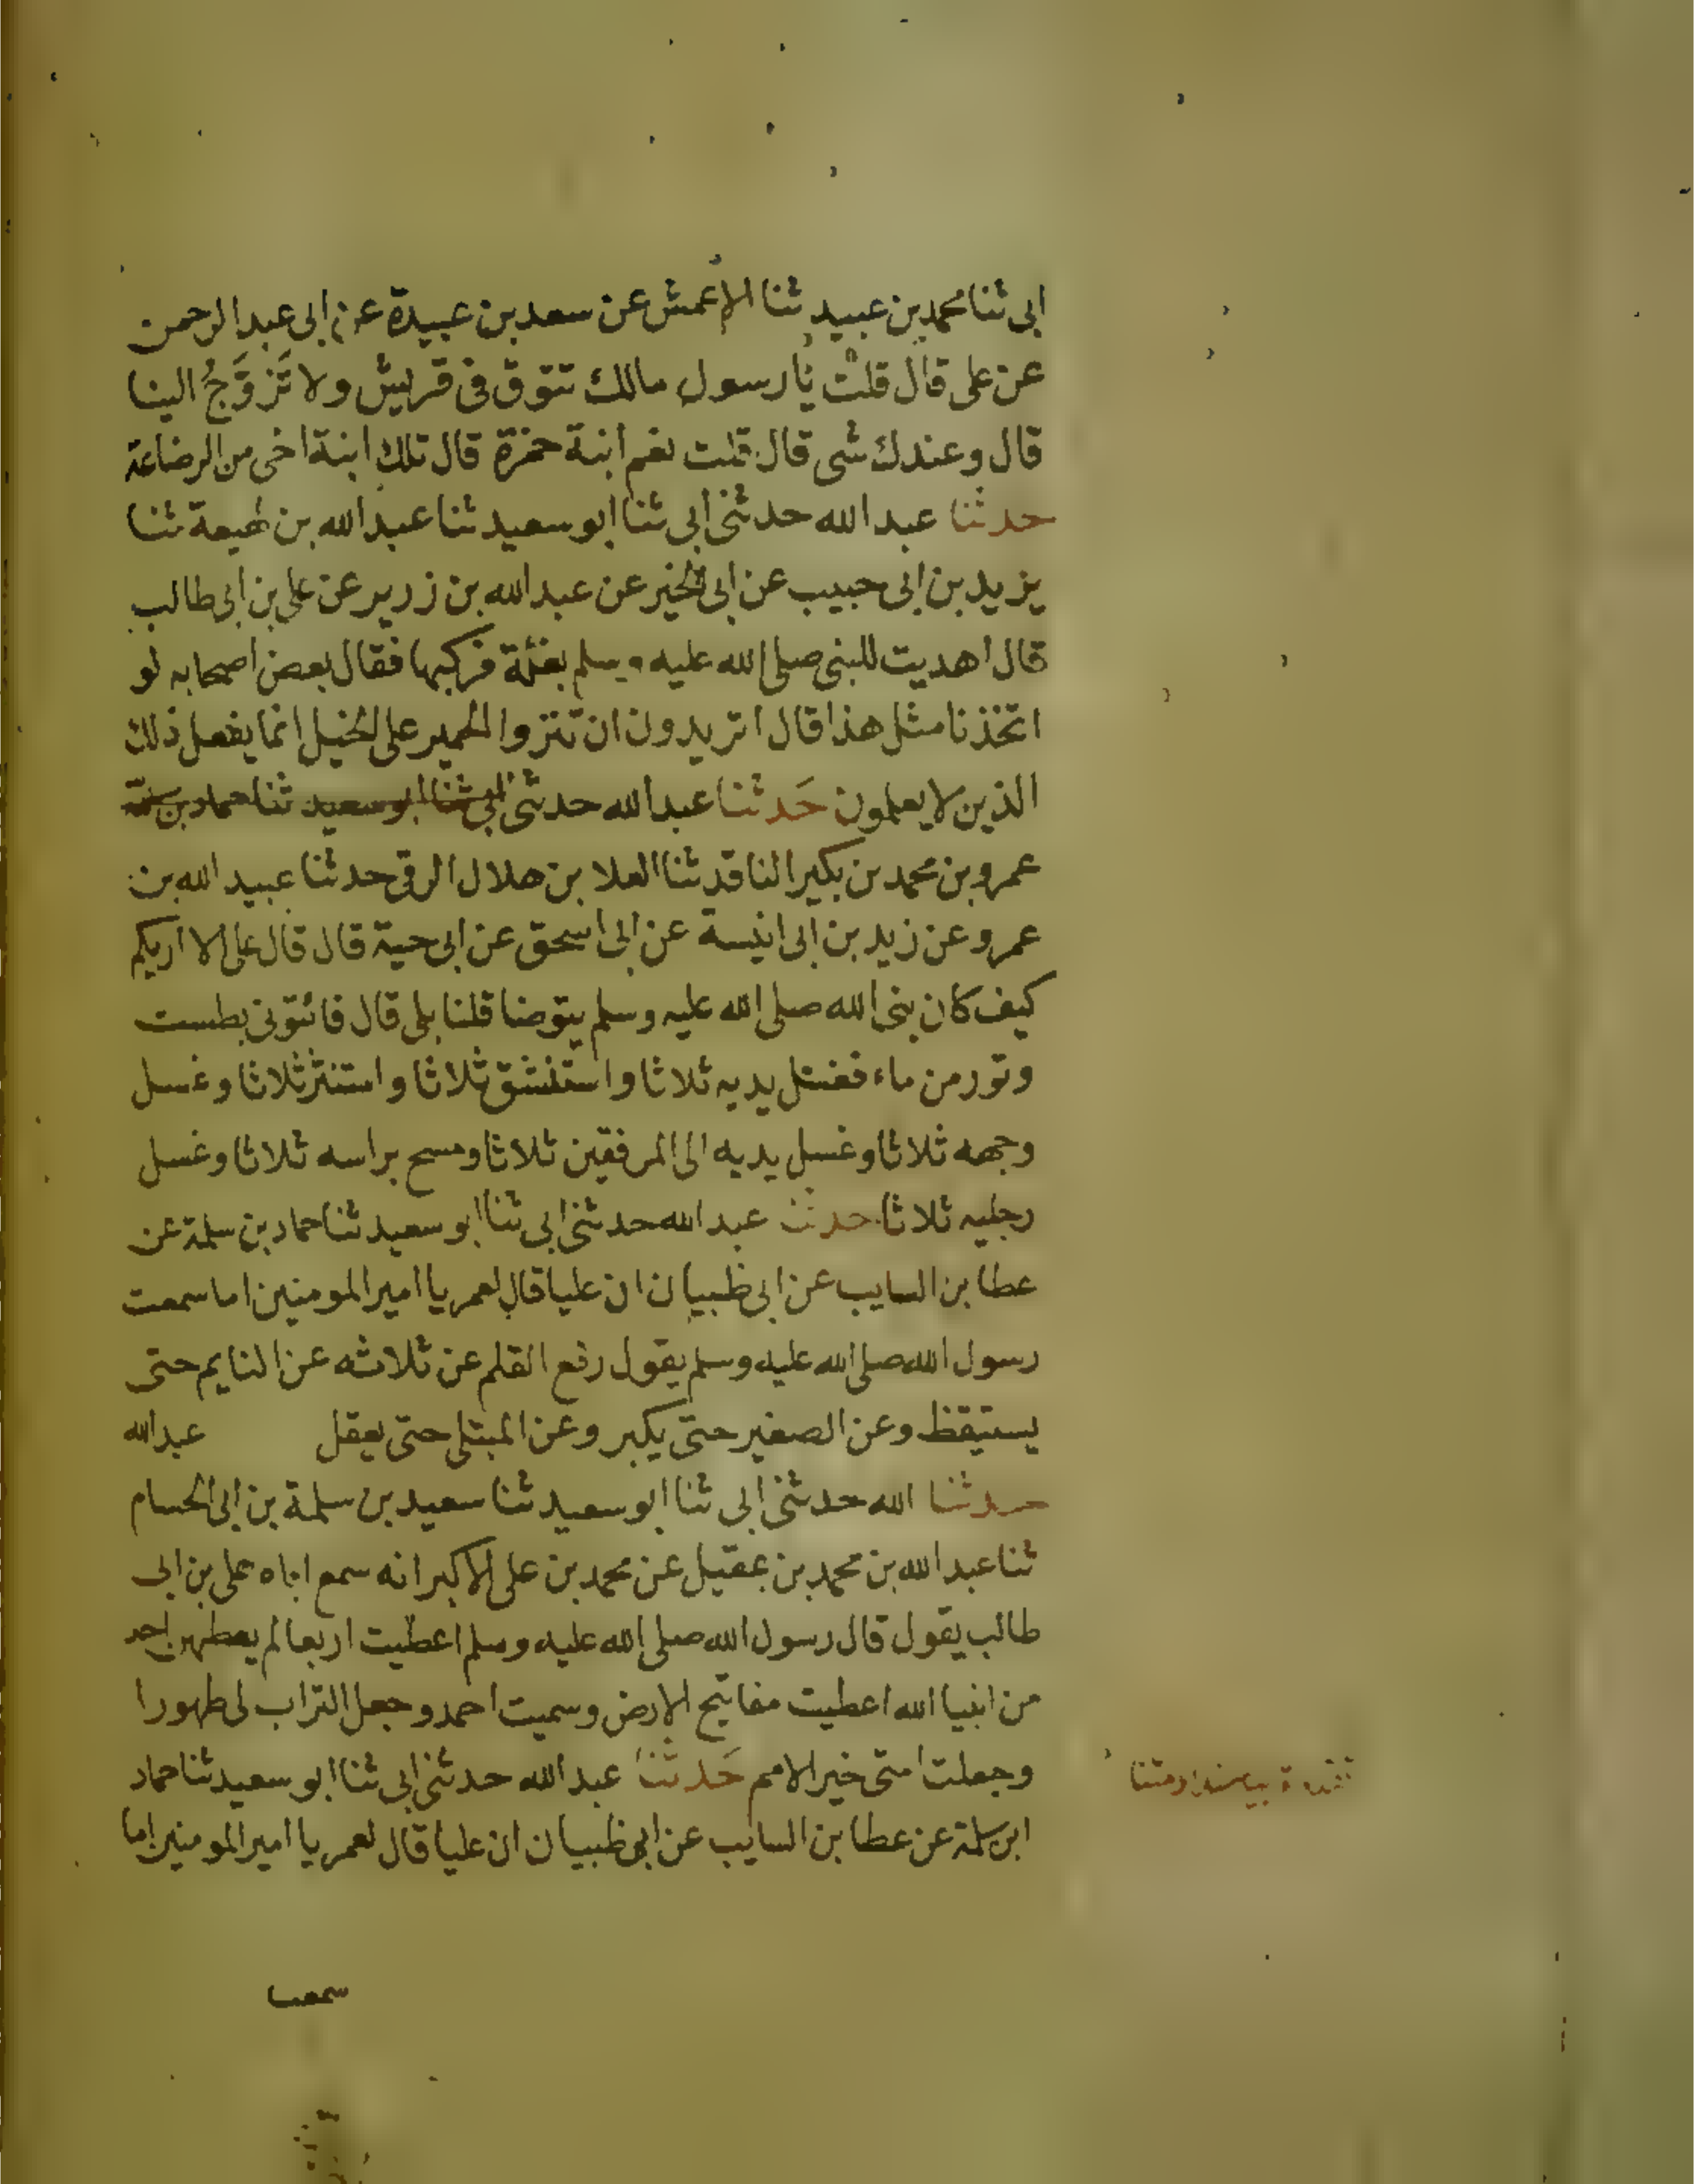 ابى ثنا محمد بن عبيد ثنا الاعمش عن سعد بن عبيدة عن ابى عبد الرحمن
عن على قال قلت يا رسول مالك تتوق فى قريش ولا تَزوَّجُ الينا
قال وعندك شى قال قلت نعم ابنة حمزة قال تلك ابنة اخى من الرضاعة
حدثنا عبد الله حدثنى ابى ثنا ابو سعيد ثنا عبد الله بن لهيعة ثنا
يزيد بن ابى حبيب عن ابى الخير عن عبد الله بن زرير عن على بن ابى طالب
قال اهديت للنبى صلى الله عليه وسلم بغلة فركبها فقال بعض اصحابه لو
اتخذنا مثل هذا قال اتريدون ان تنزوا الحمير على الخيل انما يفعل ذلك
الذين لا يعلمون حَدثنا عبد الله حدثنى ابى ثنا ابو سعيد ثنا حماد بن سلمة
عمرو بن محمد بن بكير الناقد ثنا العلا بن هلال الرقى حدثنا عبيد الله بن
عمرو عن زيد بن ابى انيسة عن ابى اسحق عن ابى حية قال قال على الا اريكم
كيف كان نبى الله صلى الله عليه وسلم يتوضا قلنا بلى قال فائتونى بطست
وتور من ماء فغسل يديه ثلاثا واستنشق ثلاثا واستنثر ثلاثا وغسل
وجهه ثلاثا وغسل يديه الى المرفقين ثلاثا ومسح براسه ثلاثا وغسل
رجليه ثلاثا حدثنا عبد الله حدثنى ابى ثنا ابو سعيد ثنا حماد بن سلمة عن
عطا بن السايب عن ابى ظبيان ان عليا قال لعمر يا امير المومنين اما سمعت
رسول الله صلى الله عليه وسلم يقول رفع القلم عن ثلاثه عن النايم حتى
يستيقظ وعن الصغير حتى يكبر وعن المبتلى حتى يعقل عبد الله
حدثنا الله حدثنى ابى ثنا ابو سعيد ثنا سعيد بن سلمة بن ابى الحسام
ثنا عبد الله بن محمد بن عقيل عن محمد بن على الاكبر انه سمع اباه على بن ابى
طالب يقول قال رسول الله صلى الله عليه وسلم اعطيت اربعا لم يعطهن احد
من انبيا الله اعطيت مفاتيح الارض وسميت احمد وجعل التراب لى طهورا
وجعلت امتى خير الامم حَدثنا عبد الله حدثنى ابى ثنا ابو سعيد ثنا حماد
ابن سلمة عن عطا بن السايب عن ابى ظبيان ان عليا قال لعمر يا امير المومنين اما
سمعت